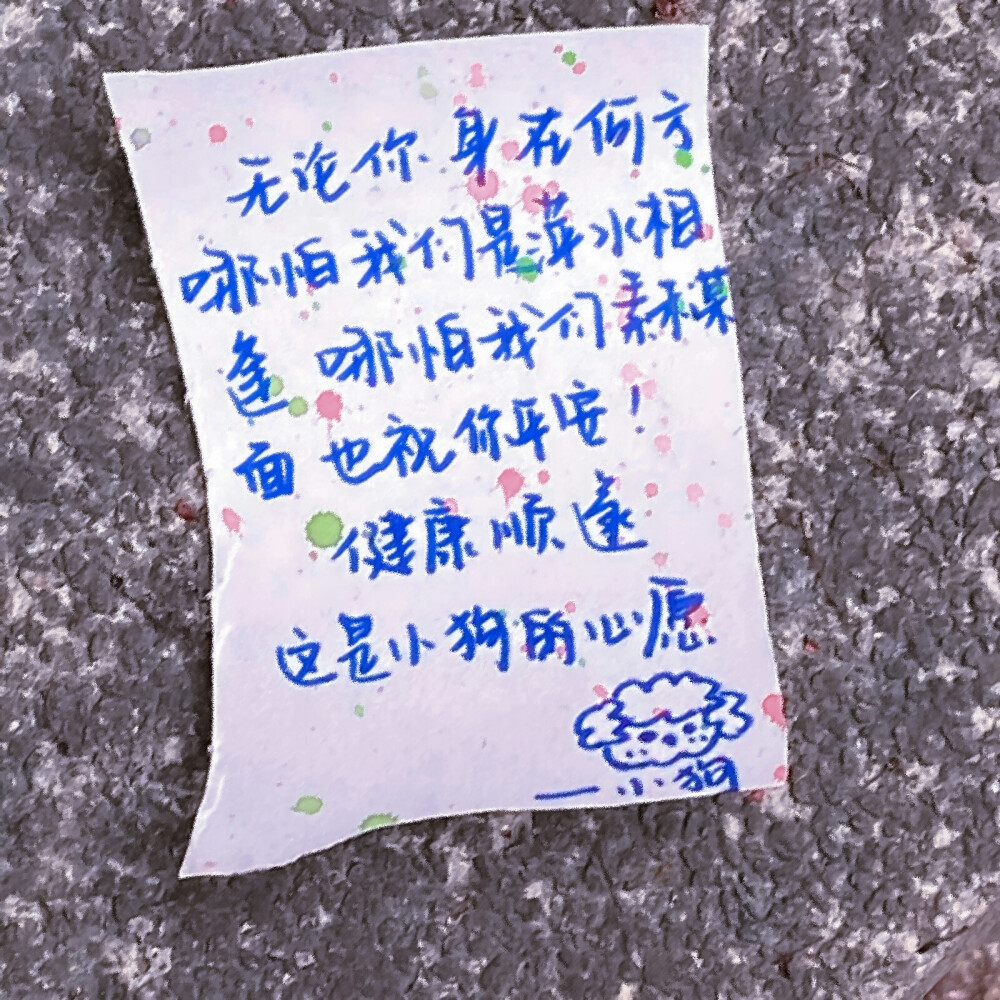 无论你身在何方
哪怕我们是萍水相
逢 哪怕我们素未谋
面 也祝你平安！
健康顺遂
这是小狗的心愿
——小狗